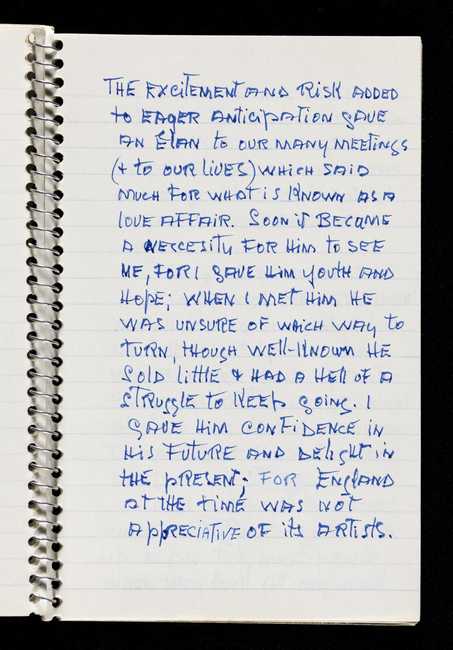 THE EXCITEMENT AND RISK ADDED
to EAGER ANTICIPATION GAVE
AN ÉLAN to OUR MANY MEETINGS
(+ to OUR LIVES) WHICH SAID
MUCH FOR WHAT IS KNOWN AS A
LOVE AFFAIR. SOON IT BECAME
A NECCESITY FOR HIM to SEE
ME, FOR I GAVE HIM YOUTH AND
HOPE; WHEN I MET HIM HE
WAS UNSURE OF WHICH WAY to
TURN, THOUGH WELL-KNOWN HE
SOLD LITTLE & HAD A HELL OF A
STRUGGLE to KEEP GOING. I
GAVE HIM CONFIDENCE IN
HIS FUTURE AND DELIGHT IN
THE PRESENT; FOR ENGLAND
AT THE TIME WAS NOT
APPRECIATIVE OF ITS ARTISTS.